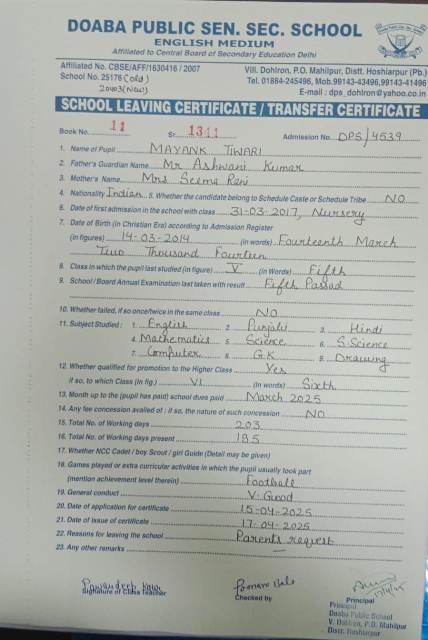 DOABA PUBLIC SEN. SEC. SCHOOL
ENGLISH MEDIUM
Affiliated to Central Board of Secondary Education Delhi
Affiliated No. CBSE/AFF/1630416 / 2007
Vill. Dohlron, P.O. Mahilpur, Distt. Hoshiarpur (Pb.)
School No. 25176 (old)
Tel. 01884-245496, Mob.99143-43496,99143-41496
20403 (New)
E-mail : dps_dohlron@yahoo.co.in
SCHOOL LEAVING CERTIFICATE / TRANSFER CERTIFICATE
Book No. 14 Sr. 1341 Admission No. DPS/4539
1. Name of Pupil MAYANK TIWARI
2. Father's Guardian Name Mr Ashwani Kumar
3. Mother's Name Mrs Seema Rani
4. Nationality Indian 5. Whether the candidate belong to Schedule Caste or Schedule Tribe NO
6. Date of first admission in the school with class 31-03-2017, Nursery
7. Date of Birth (in Christian Era) according to Admission Register
(in figures) 14-03-2014 (in words) Fourteenth March
Two Thousand Fourteen
8. Class in which the pupil last studied (in figure) V (in Words) Fifth
9. School / Board Annual Examination last taken with result Fifth Passed
10. Whether failed, if so once/twice in the same class NO
11. Subject Studied : 1. English 2. Punjabi 3. Hindi
4. Mathematics 5. Science 6. S.Science
7. Computer 8. G.K 9. Drawing
12. Whether qualified for promotion to the Higher Class Yes
if so, to which Class (in fig.) VI (in words) Sixth
13. Month up to the (pupil has paid) school dues paid March 2025
14. Any fee concession availed of : if so, the nature of such concession NO
15. Total No. of Working days 203
16. Total No. of Working days present 185
17. Whether NCC Cadet / boy Scout / girl Guide (Detail may be given)
18. Games played or extra curricular activities in which the pupil usually took part
(mention achievement level therein) Football
19. General conduct V. Good
20. Date of application for certificate 15-04-2025
21. Date of issue of certificate 17-04-2025
22. Reasons for leaving the school Parents request
23. Any other remarks —
Pawandeep Kaur
Signature of Class Teacher
Poonam Bala
Checked by
17/4/25
Principal
Principal
Doaba Public School
V. Dohlron, P.O. Mahilpur
Distt. Hoshiarpur